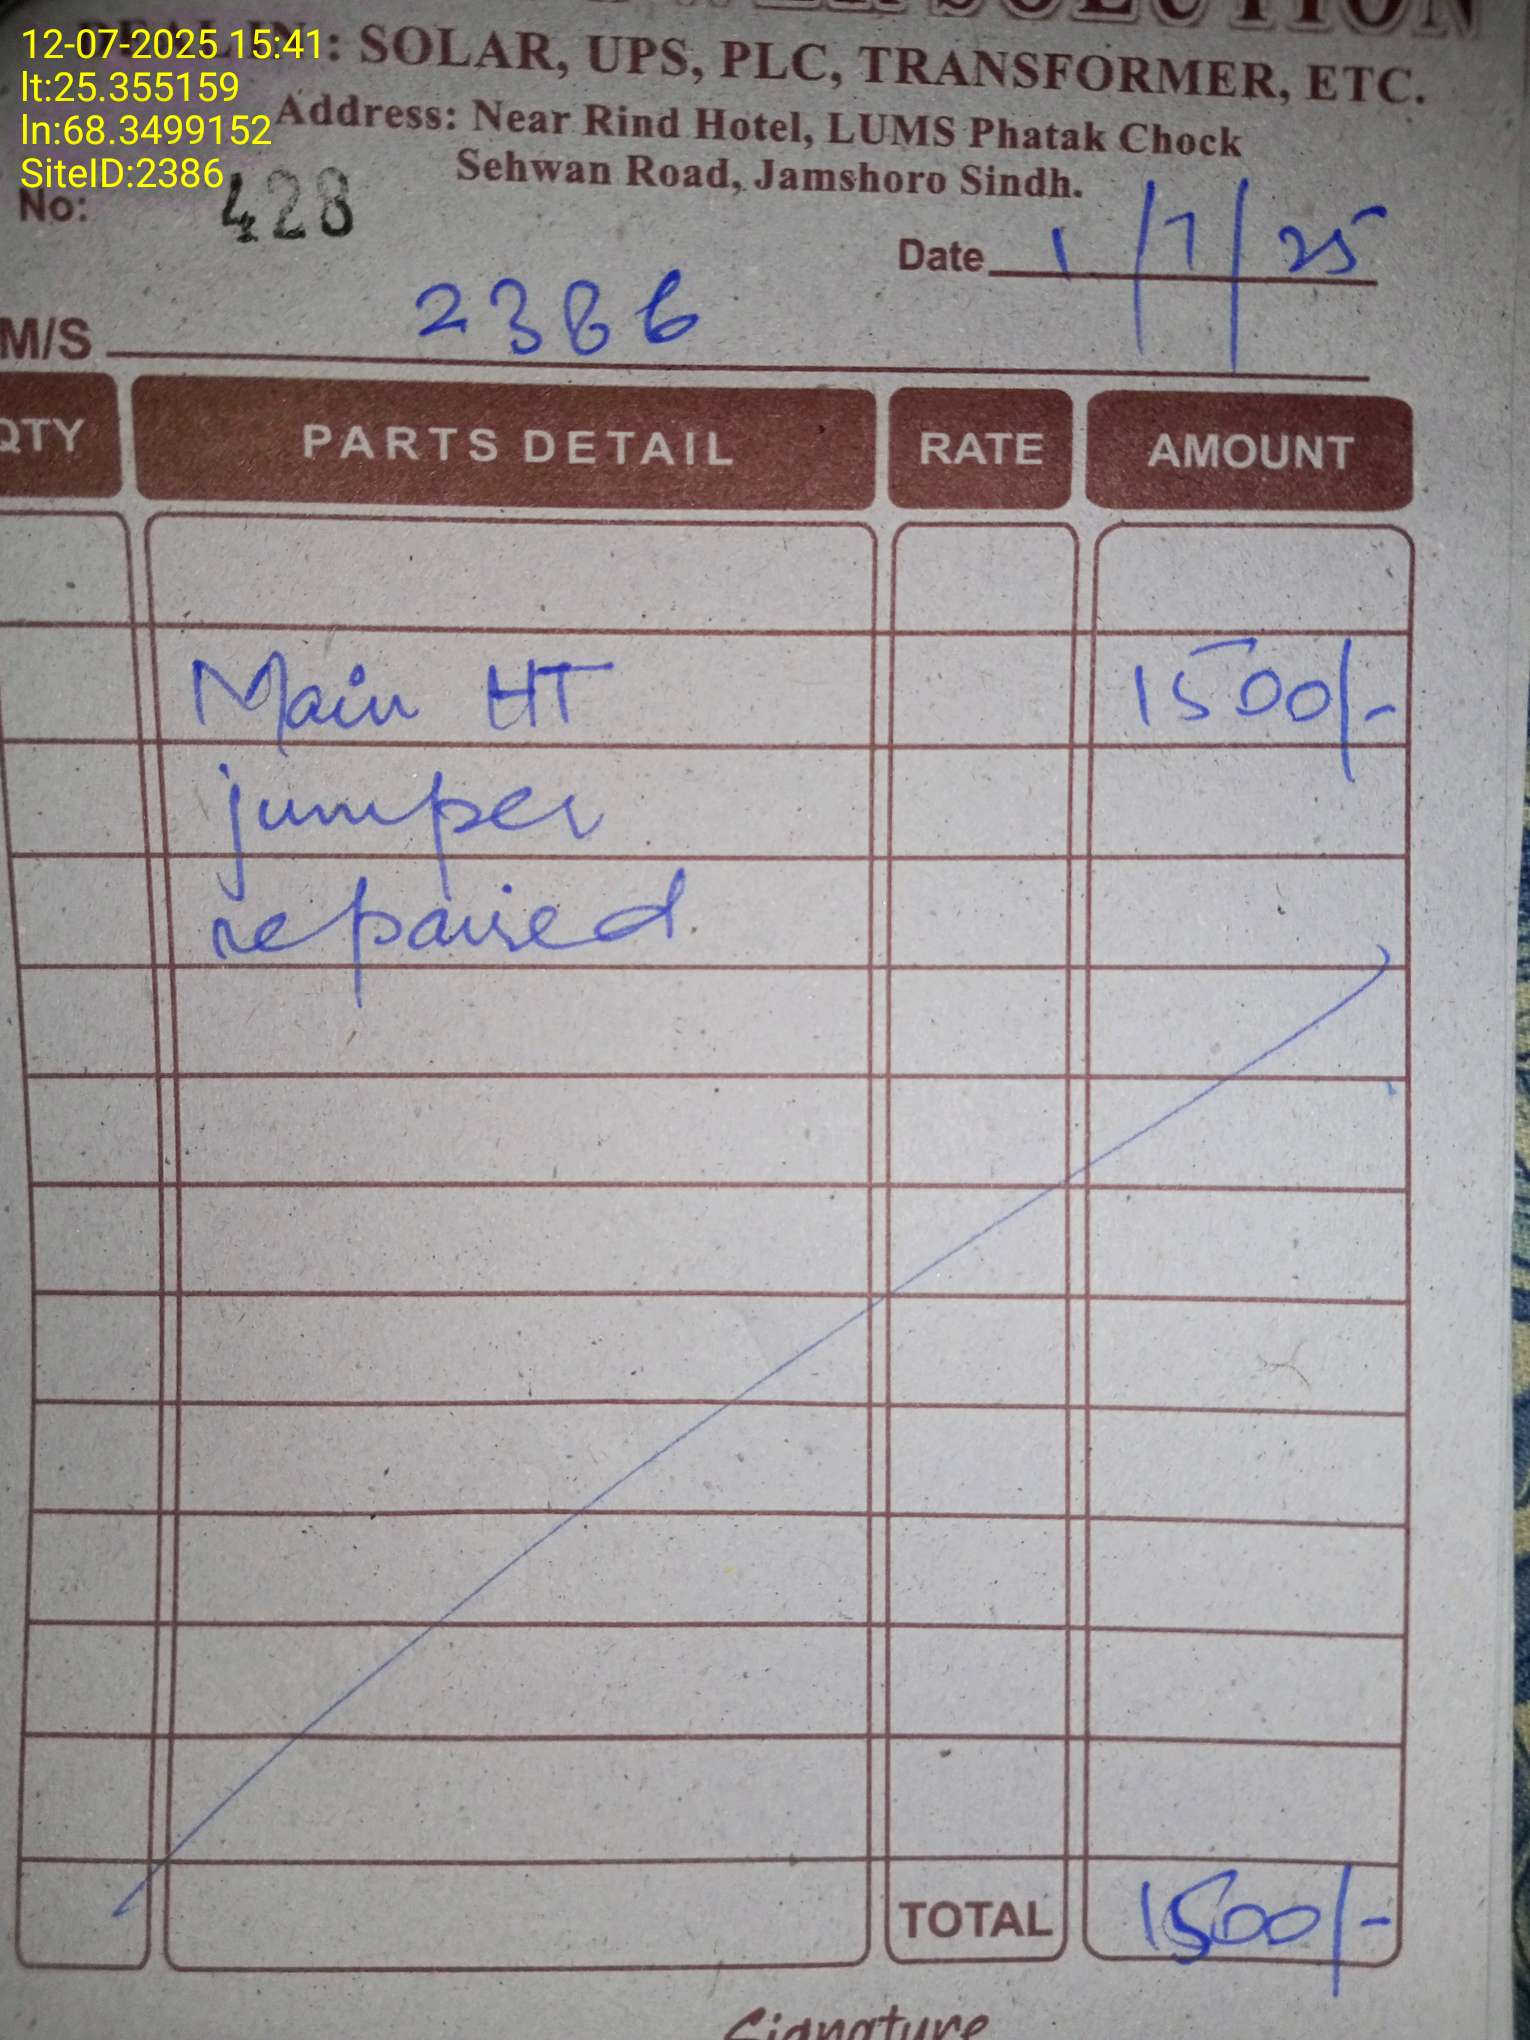 SOLUTION
12-07-2025 15:41
DEAL IN: SOLAR, UPS, PLC, TRANSFORMER, ETC.
lt:25.355159
ln:68.3499152
Address: Near Rind Hotel, LUMS Phatak Chock
SiteID:2386
Sehwan Road, Jamshoro Sindh.
No: 428
Date 1/7/25
M/S 2386
QTY PARTS DETAIL RATE AMOUNT
Main HT 1500/-
jumper
repaired
TOTAL 1500/-
Signature